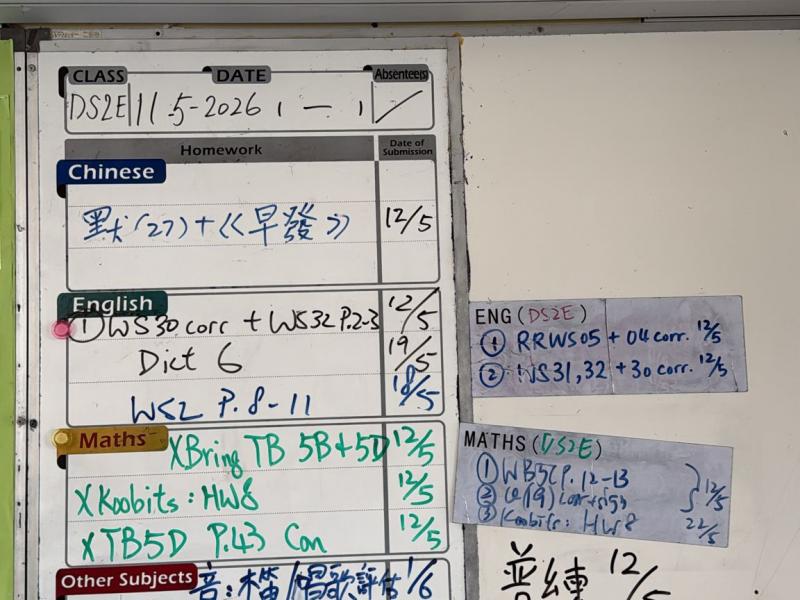 CLASS DATE Absentee(s)
DS2E 11.5-2026 ( 一 )
Homework Date of Submission
Chinese
默(27)+《早發》 12/5
English
① WS30 corr + WS32 P.2-3 12/5
Dict 6 19/5
WS2 P.8-11 18/5
Maths XBring TB 5B+5D 12/5
XKoobits: HW8 12/5
XTB5D P.43 Con 12/5
Other Subjects 音: 橋/唱歌評估 1/6
ENG (DS2E)
① RRWS05 + 04 corr. 12/5
② WS31,32 + 30 corr. 12/5
MATHS (DS2E)
① WB5C P.12-13
② Q(19) corr+sign 12/5
③ Koobits: HW8 22/5
普練 12/5